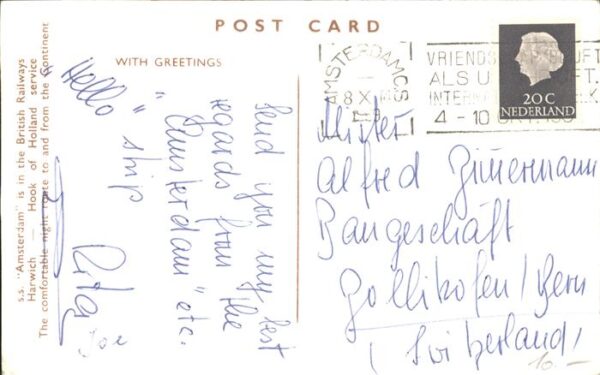 POST CARD
WITH GREETINGS
s.s. "Amsterdam" is in the British Railways
Harwich — Hook of Holland service
The comfortable night route to and from the Continent
Hello
Send you my best
regards from the
"Amsterdam" etc.
" ship
Rita
Joe
AMSTERDAM C.S
8 X
VRIENDS
ALS U
INTERN
4 - 10 OKT. 195
20 C
NEDERLAND
Mister
Alfred Zimermann
Baugeschäft
Zollikofen/Bern
(Switzerland)
10.-